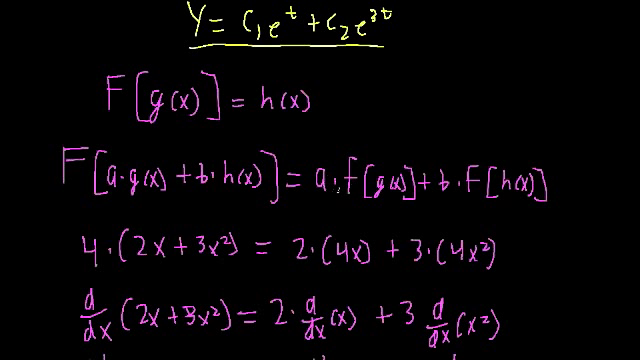 Y = c₁e^t + c₂e^3t
F[g(x)] = h(x)
F[a·g(x) + b·h(x)] = a·f[g(x)] + b·F[h(x)]
4·(2x + 3x²) = 2·(4x) + 3·(4x²)
d/dx (2x + 3x²) = 2·d/dx (x) + 3 d/dx (x²)